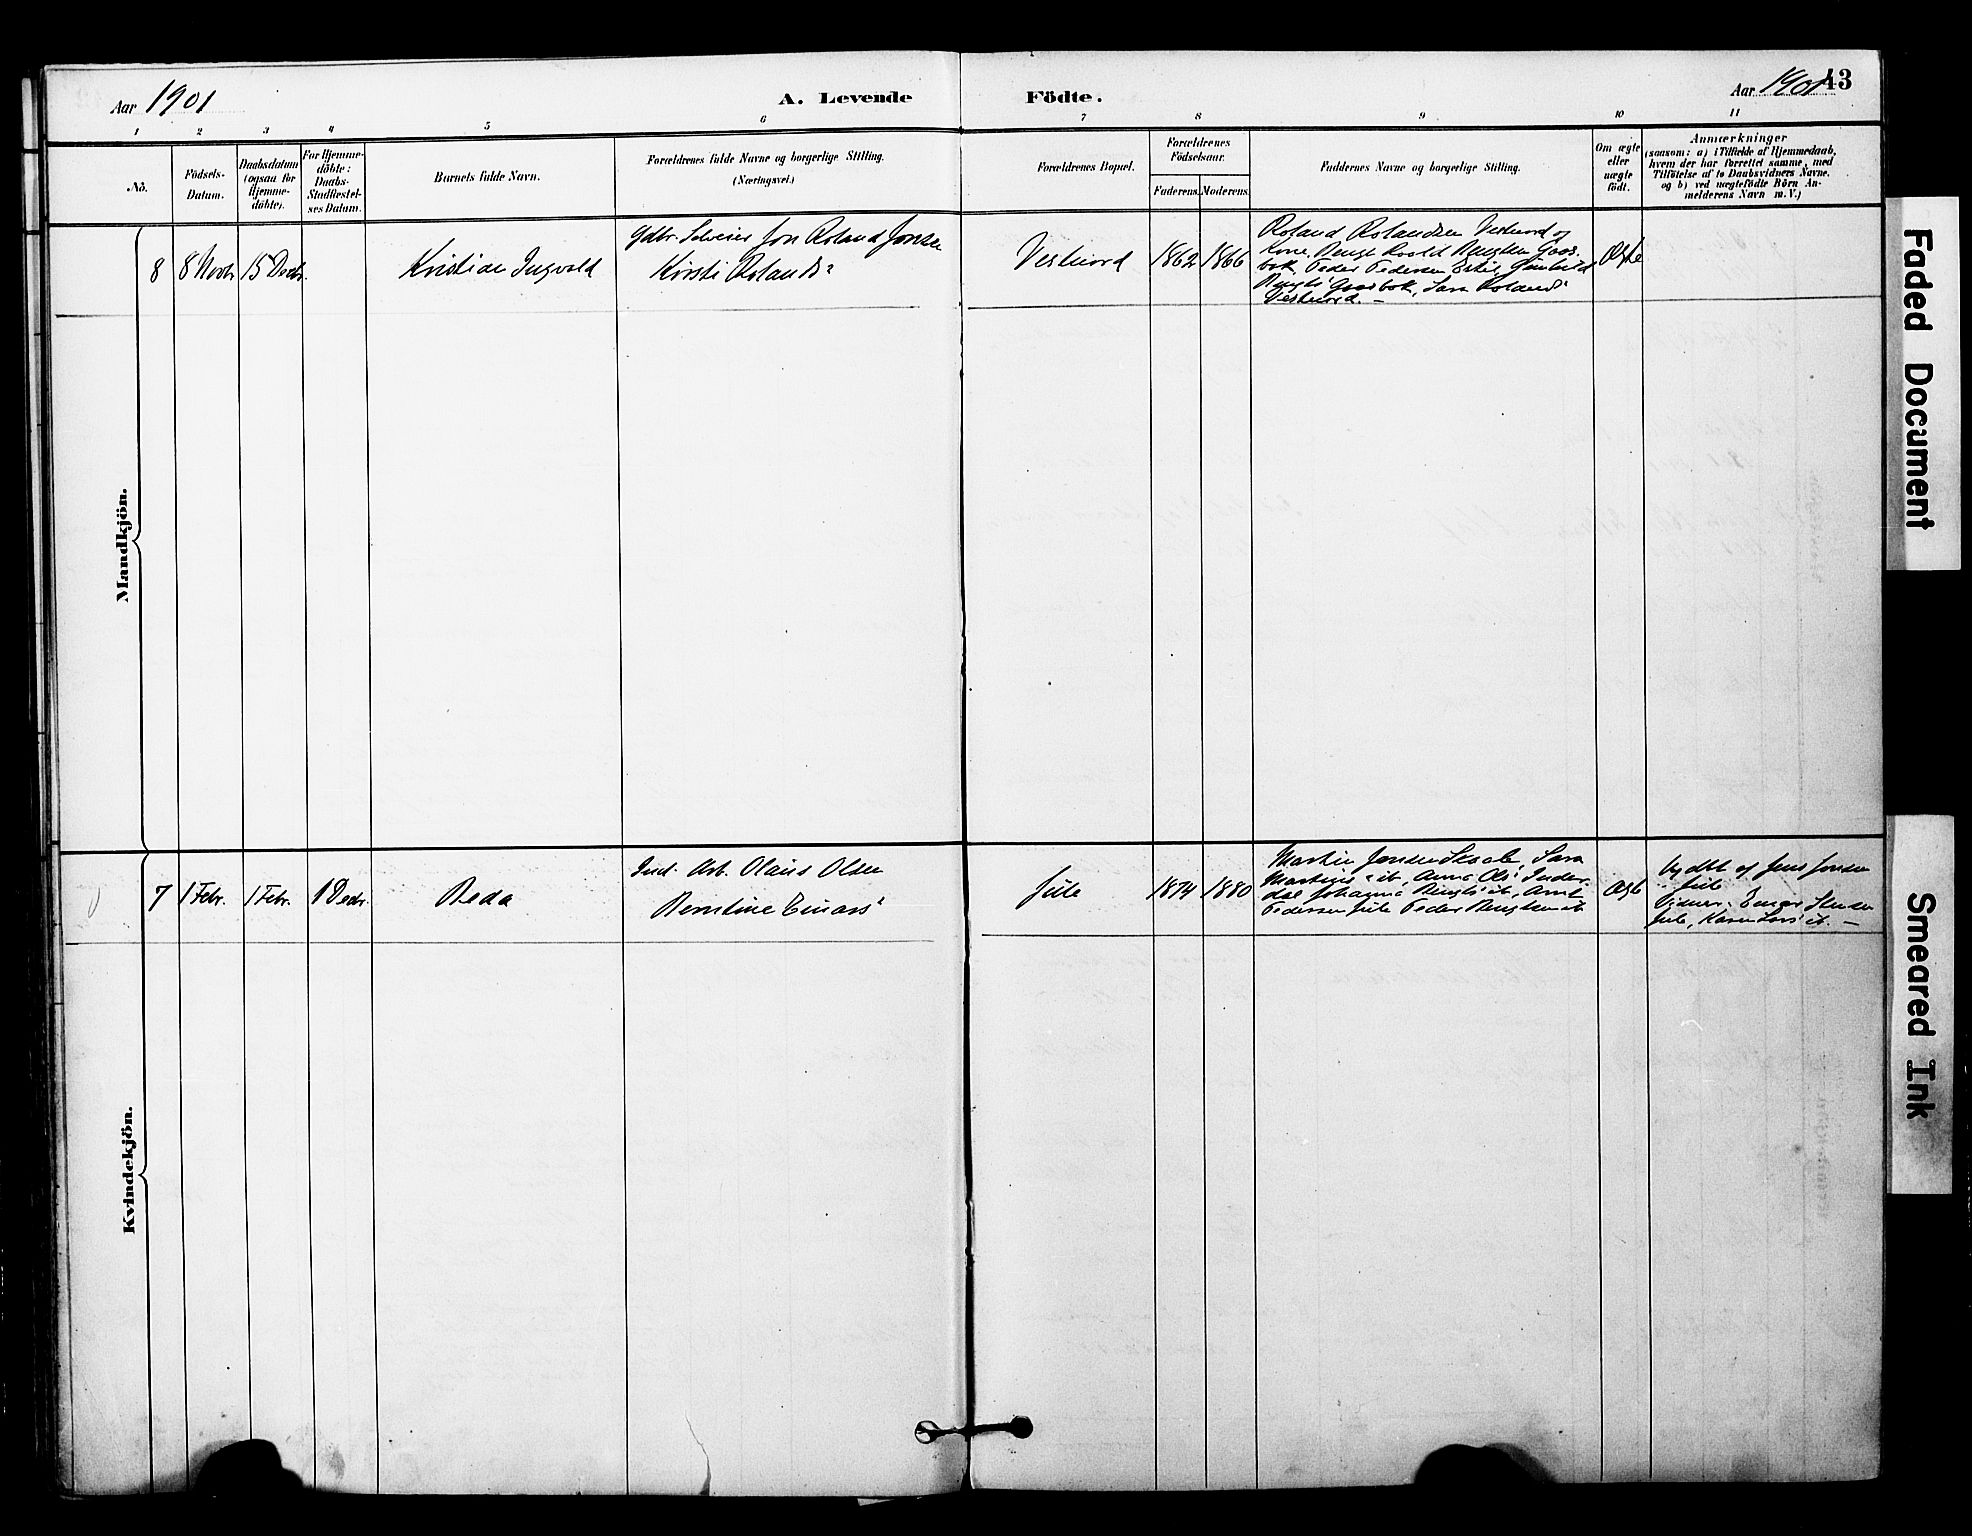 Aar 1901
A. Levende
Födte.
Aar 1901
43
1 2 3 4 5 6 7 8 9 10 11
No.
Födsels-
Datum.
Daabsdatum
(ogsaa for
Hjemme-
döbte).
For Hjemme-
döbte:
Daabs-
Stadfæstel-
ses Datum.
Barnets fulde Navn.
Forældrenes fulde Navne og borgerlige Stilling.
(Næringsvei.)
Forældrenes Bopæl.
Forældrenes
Födselsaar.
Faderens.
Moderens.
Faddernes Navne og borgerlige Stilling.
Om ægte
eller
uægte
födt.
Anmærkninger
(saasom: a) i Tilfælde af Hjemmedaab,
hvem der har forrettet samme, med
Tilföielse af to Daabsvidners Navne,
og b) ved uægtefödte Börn An-
melderens Navn m. V.)
Mandkjön.
8
8 Novbr
15 Decbr.
Kristian Ingvald
Gdbr. Selveier Jon Roland Jonsen
Kirsti Rolands
Vestnord
1862
1866
Roland Rolandsen Vestnord og
Kone, Bengt Roald Bengtsen
Peder Pedersen
Sara Rolands
Vestnord. —
Ægte
Kvindekjön.
7
1 Febr.
1 Febr.
1 Decbr.
Beda
Ind. Arb. Olaus Olsen
Berntine Einars
Jule
1874
1880
Martin Jonsen Sara
Martins ib, Anna Ols Inder
dal Johanna Bengts ib, Arnt
Pedersen Jule Peder Bengtsen ib
Ægte
Hjdbt af Jens Jonsen
Jule
Vidner: Einar
Jule, Karen Lars ib. —
Faded Document
Smeared Ink